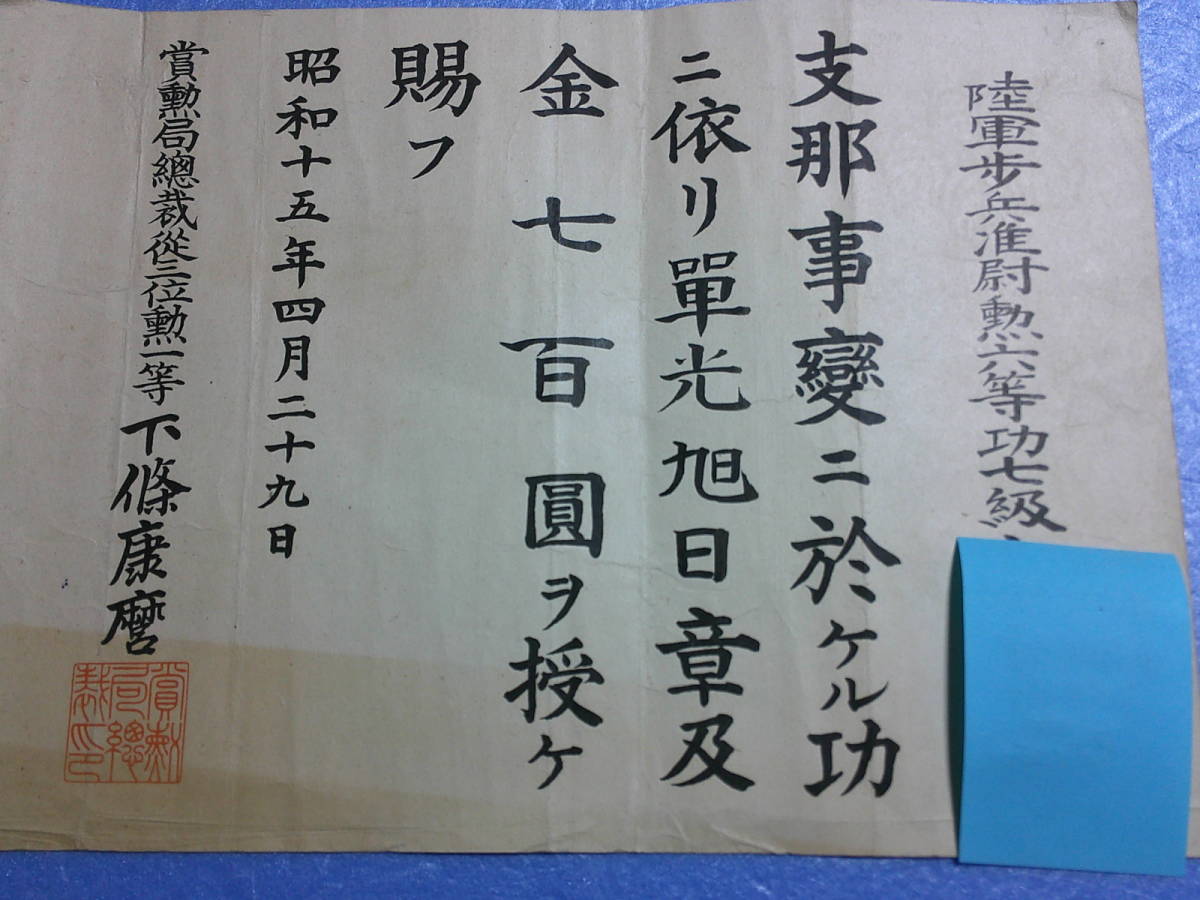 陸軍歩兵准尉勲六等功七級
支那事變ニ於ケル功
ニ依リ單光旭日章及
金七百圓ヲ授ケ
賜フ
昭和十五年四月二十九日
賞勲局總裁從三位勲一等下條康麿
賞勲
局總
裁印